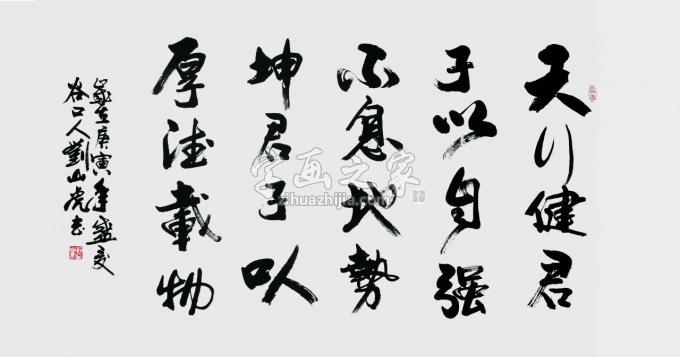 天行健君
子以自强
不息地勢
坤君子以
厚德載物
歲在庚寅年盛夏
谷口人劉山虎书
字画之家
zihuazhijia.com